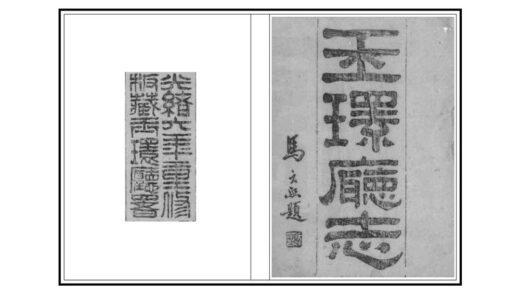 玉環廳志
馬文熙題
光緒六年重修
板藏玉環廳署